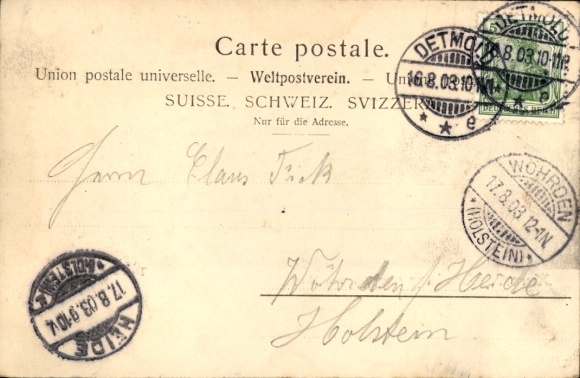 Carte postale.
Union postale universelle. — Weltpostverein. —
SUISSE. SCHWEIZ. SVIZZERA
Nur für die Adresse.
DETMOLD
16.8.03.10-11V.
* * e
DETMOLD
.8.03.10-11V.
* e
Herrn Claus Frick
WÖHRDEN
17.8.03 12-1N.
* (HOLSTEIN) *
Wöhrden b/ Heide
Holstein
HEIDE
17.8.03.9-10V.
* (HOLSTEIN) *